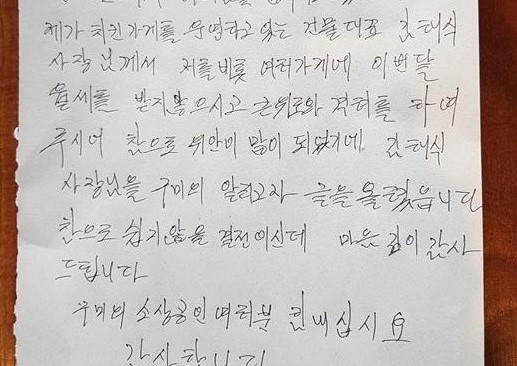 제가 치킨가게를 운영하고 있는 건물대표 김태식
사장님께서 저를비롯 여러가게에 이번달
월세를 받지않으시고 큰위로와 격려를 하여
주시어 참으로 위안이 많이 되었기에 김태식
사장님을 구미의 알리고자 글을 올렸읍니다
참으로 쉽지않을 결정이신데 마음 깊이 감사
드립니다
구미의 소상공인여러분 힌내십시요
감사합니다